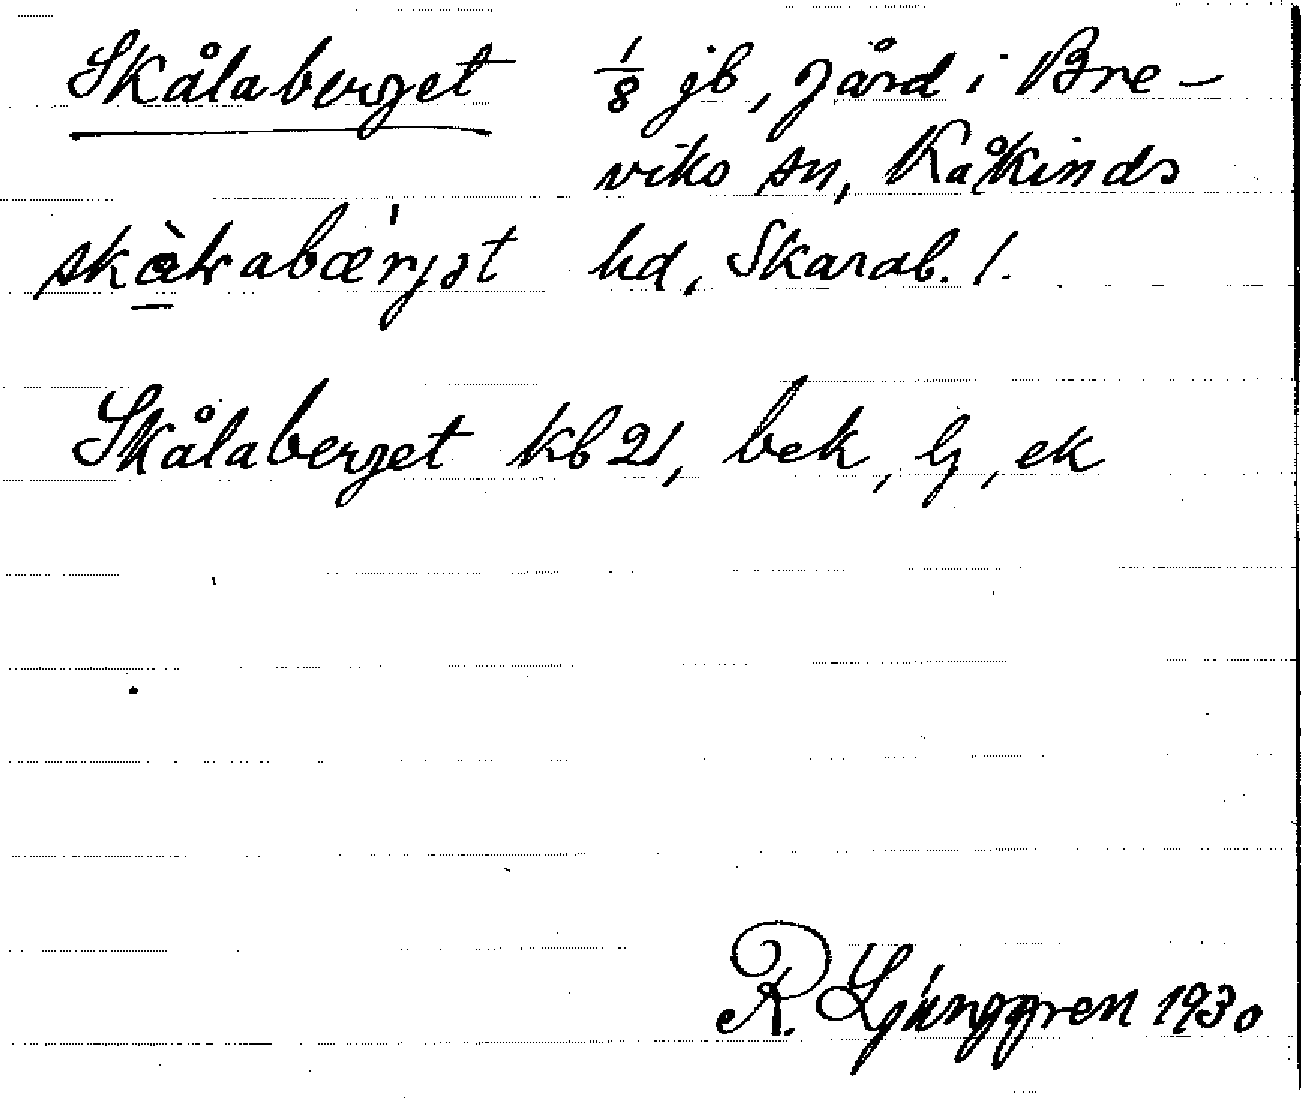 Skålaberget 1/8 jb, gård i Bre-
viks sn, Kåkinds
hd, Skarab. l.
Skålaberget kb 21, bek, lj, ek
R. Ljunggren 1930